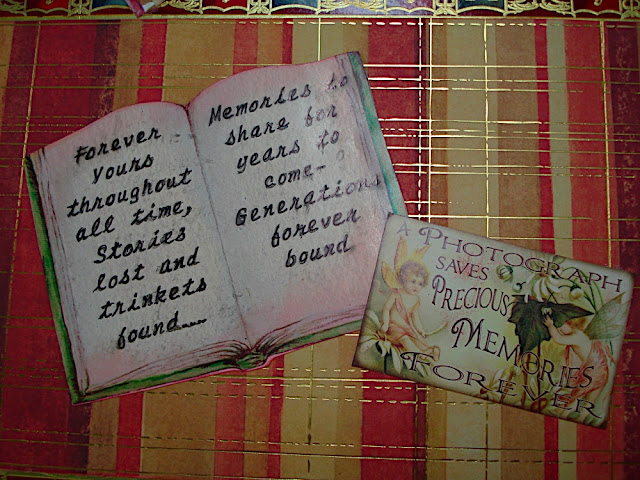 Forever
yours
throughout
all time,
Stories
lost and
trinkets
found....
Memories to
share for
years to
come-
Generations
forever
bound
A PHOTOGRAPH
SAVES
PRECIOUS
MEMORIES
FOREVER